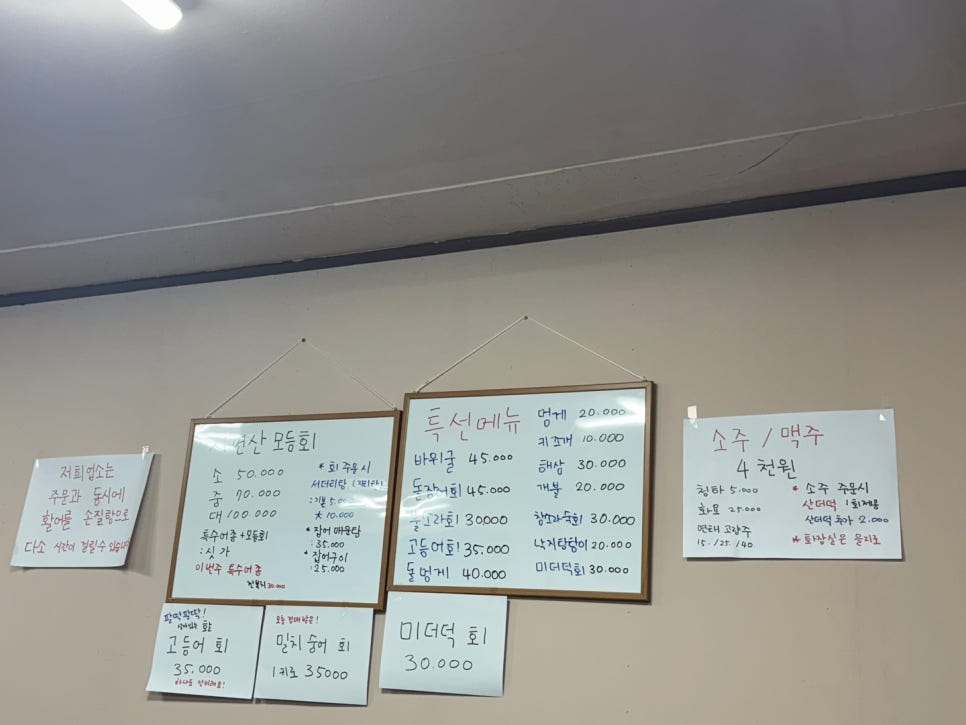 저희 업소는
주문과 동시에
활어를 손질함으로
다소 시간이 걸릴수있습니다
연산 모듬회
소 50.000
중 70.000
대 100.000
특수어종 + 모듬회
: 싯가
이번주 특수어종
30.000
* 회 주문시
서더리탕
: 기본 5.000
大 10.000
* 잡어 매운탕
: 35.000
* 잡어구이
: 25.000
특선메뉴
바위굴 45.000
돌장어회 45.000
뿔소라회 30000
고등어회 35.000
돌멍게 40.000
멍게 20.000
키조개 10.000
해삼 30.000
개불 20.000
참소라숙회 30.000
낙지탕탕이 20.000
미더덕회 30.000
소주 / 맥주
4천원
청하 5.000
화요 25.000
연태 고량주
15. / 25. / 40
* 소주 주문시
산더덕 1회제공
산더덕 추가 2.000
* 화장실은 뒤로
팔딱팔딱!
고등어 회
35.000
오늘 경매 받은!
밀치 숭어 회
1키로 35000
미더덕 회
30.000